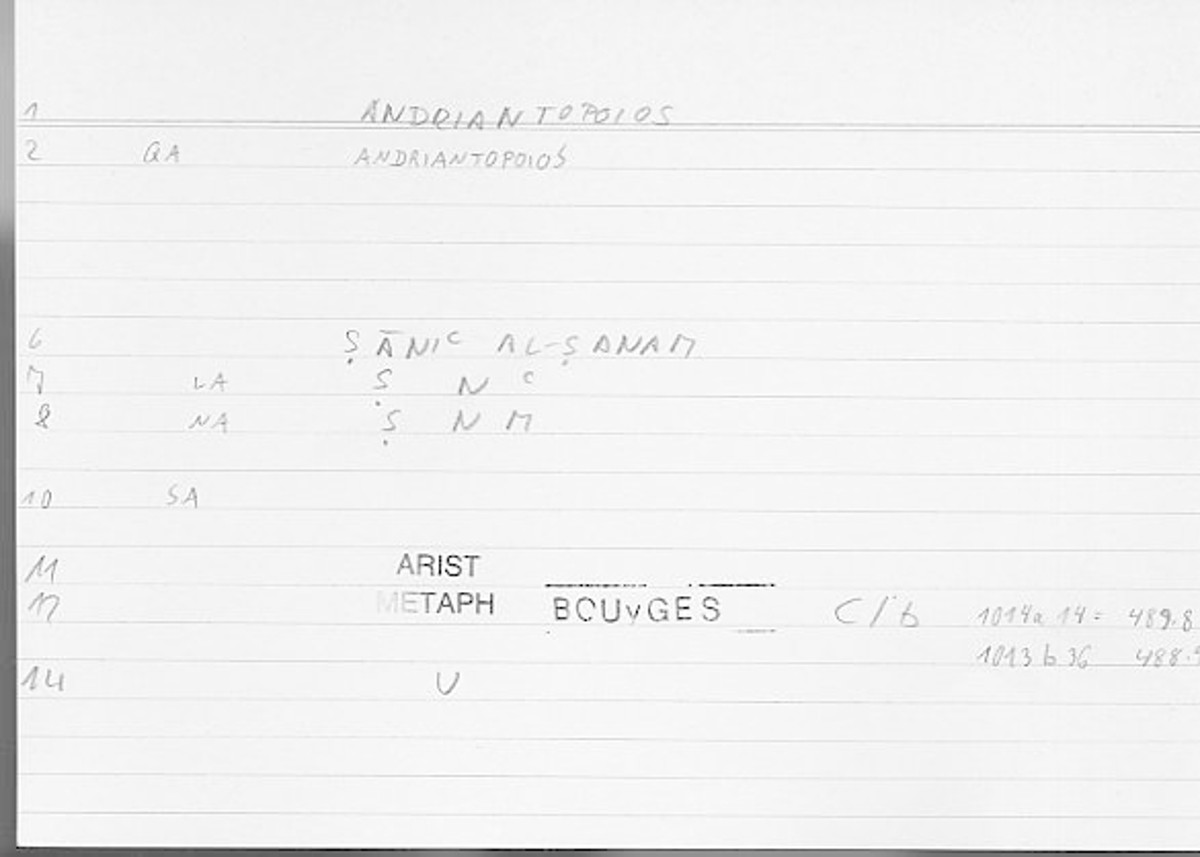 1 ANDRIANTOPOIOS
2 QA ANDRIANTOPOIOS
6 ṢĀNIᶜ AL-ṢANAM
7 LA Ṣ N ᶜ
8 NA Ṣ N M
10 SA
11 ARIST
12 METAPH BOUYGES C/b 1014a 14 = 489.8
1013 b 36 488.
14 U